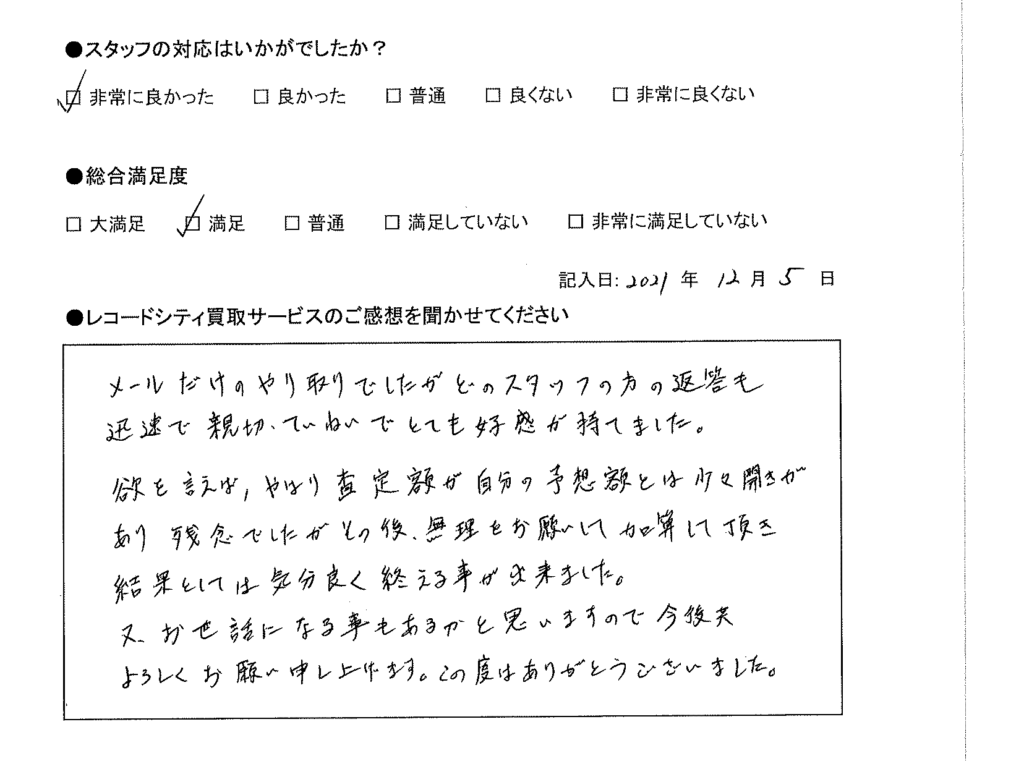 ●スタッフの対応はいかがでしたか？
☑ 非常に良かった □ 良かった □ 普通 □ 良くない □ 非常に良くない
●総合満足度
□ 大満足 ☑ 満足 □ 普通 □ 満足していない □ 非常に満足していない
記入日: 2021 年 12 月 5 日
●レコードシティ買取サービスのご感想を聞かせてください
メールだけのやり取りでしたがどのスタッフの方の返答も
迅速で親切、ていねいでとても好感が持てました。
欲を言えば, やはり査定額が自分の予想額とは少々開きが
あり残念でしたがその後、無理をお願いして加算して頂き
結果としては気分良く終える事が出来ました。
又、お世話になる事もあるかと思いますので今後共
よろしくお願い申し上げます。この度はありがとうございました。